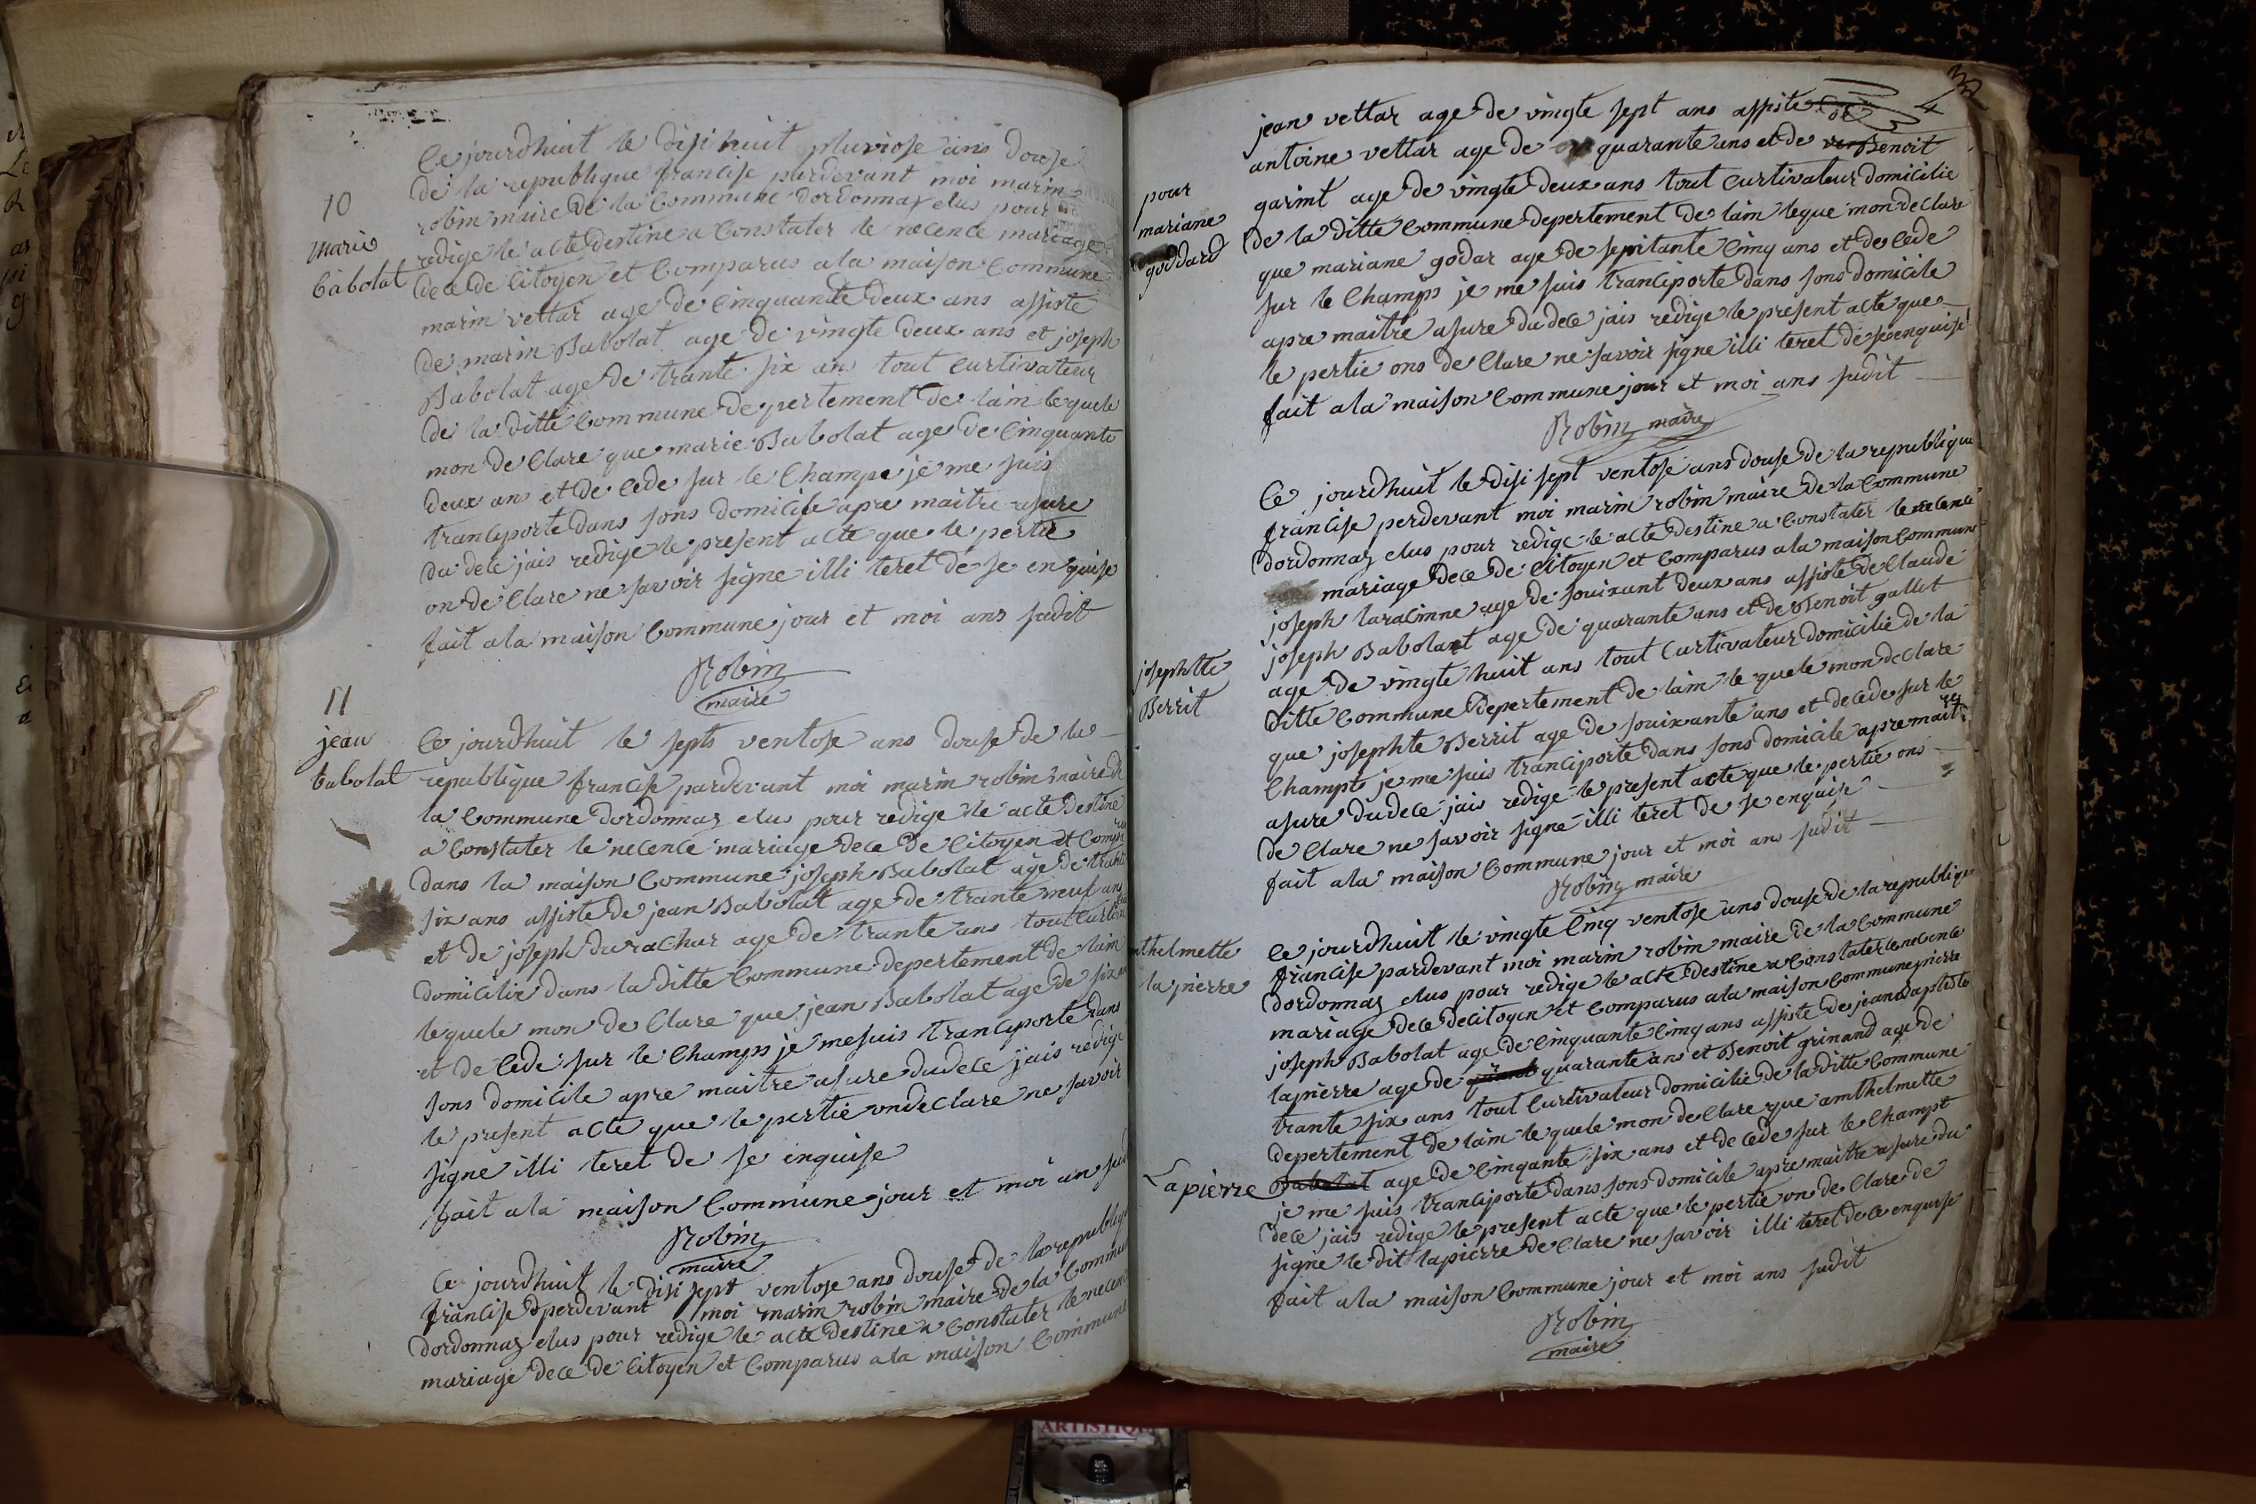 10
marie
babolat
Ce jourdhuit le disi huit pluviose ans douse
de la republique francise pardevant moi marin
robin maire de la Commune dordonnaz elus pour
redige le acte destine a Constater le necence mariage
dece de Citoyen et Comparus ala maison Commune
marin vettar age de Cinquante deux ans assiste
de marin Babolat age de vingte deux ans et joseph
Babolat age de trante six an tout Curtivateur
de la ditte Commune depertement de lain le quele
mon de Clare que marie Babolat age de Cinquante
deux an et de Cede sur le Champs je me suis
tranciporte dans sons domicile apre maitre asure
du dece jais redige le present acte que le pertie
on de Clare ne savoir signe illi teret de se enquise
fait ala maison Commune jour et moi ans sudit
Robin
maire
11
jean
babolat
Ce jourdhuit le septs ventose ans douse de la
republique francise pardevant moi marin robin maire de
la Commune dordonnaz elus pour redige le acte destine
a Constater le necence mariage dece de Citoyen et Comparus
dans la maison Commune joseph Babolat age de trante
six ans assiste de jean Babolat age de trante neuf ans
et de joseph durachur age de trante ans tout
domicilie dans la ditte Commune depertement de lain
le quele mon de Clare que jean Babolat age de six
et de Cede sur le Champs je me suis tranciporte dans
sons domicile apre maitre asure du dece jais redige
le present acte que le pertie on de Clare ne savoir
signe illi teret de se enquise
fait ala maison Commune jour et moi an
Robin
maire
Ce jourdhuit le disi sept ventose ans douse de la republique
francise perdevant moi marin robin maire de la Commune
dordonnaz elus pour redige le acte destine a Constater le necence
mariage dece de Citoyen et Comparus ala maison Commune
32
4
pour
mariane
goddard
jean vettar age de vingte sept ans assiste de
antoine vettar age de quarante ans et de Benoit
garint age de vingte deux ans tout Curtivateur domicilie
de la ditte Commune depertement de lain leque mon de Clare
que mariane godar age de sepitante Cinq ans et de Cede
sur le Champs je me suis tranciporte dans sons domicile
apre maitre asure du dece jais redige le present acte que
le pertie ons de Clare ne savoir signe illi teret de se enquise
fait ala maison Commune jour et moi ans sudit
Robin maire
josephtte
Berrit
Ce jourdhuit le disi sept ventose ans douse de la republique
francise perdevant moi marin robin maire de la Commune
dordonnaz elus pour redige le acte destine a Constater le necence
mariage dece de Citoyen et Comparus ala maison Commune
joseph laracinne age de souixant deux ans assiste de Claude
joseph Babolat age de quarante ans et de Benoit gallet
age de vingte huit ans tout Curtivateur domicilie de la
ditte Commune depertement de lain le quele mon de Clare
que josephte Berrit age de souixante ans et de Cede sur le
Champs je me suis tranciporte dans sons domicile apre maitre
asure du dece jais redige le present acte que le pertie ons
de Clare ne savoir signe illi teret de se enquise
fait ala maison Commune jour et moi ans sudit
Robin maire
nthelmette
lapierre
Ce jourdhuit le vingte Cinq ventose ans douse de la republique
francise pardevant moi marin robin maire de la Commune
dordonnaz elus pour redige le acte destine a Constater le necence
mariage dece de Citoyen et Comparus ala maison Commune pierre
joseph Babolat age de Cinquante Cinq ans assiste de jean Baptiste
lapierre age de quarante ans et Benoit grinand age de
trante six ans tout Curtivateur domicilie de la ditte Commune
depertement de lain le quele mon de Clare que anthelmette
Lapierre Babolat age de Cinqante six ans et de Cede sur le Champs
je me suis tranciporte dans sons domicile apre maitre asure du
dece jais redige le present acte que le pertie on de Clare de
signe le dit lapierre de Clare ne savoir illi teret de Ce enquise
fait ala maison Commune jour et moi ans sudit
Robin
maire
ARTISTIQU